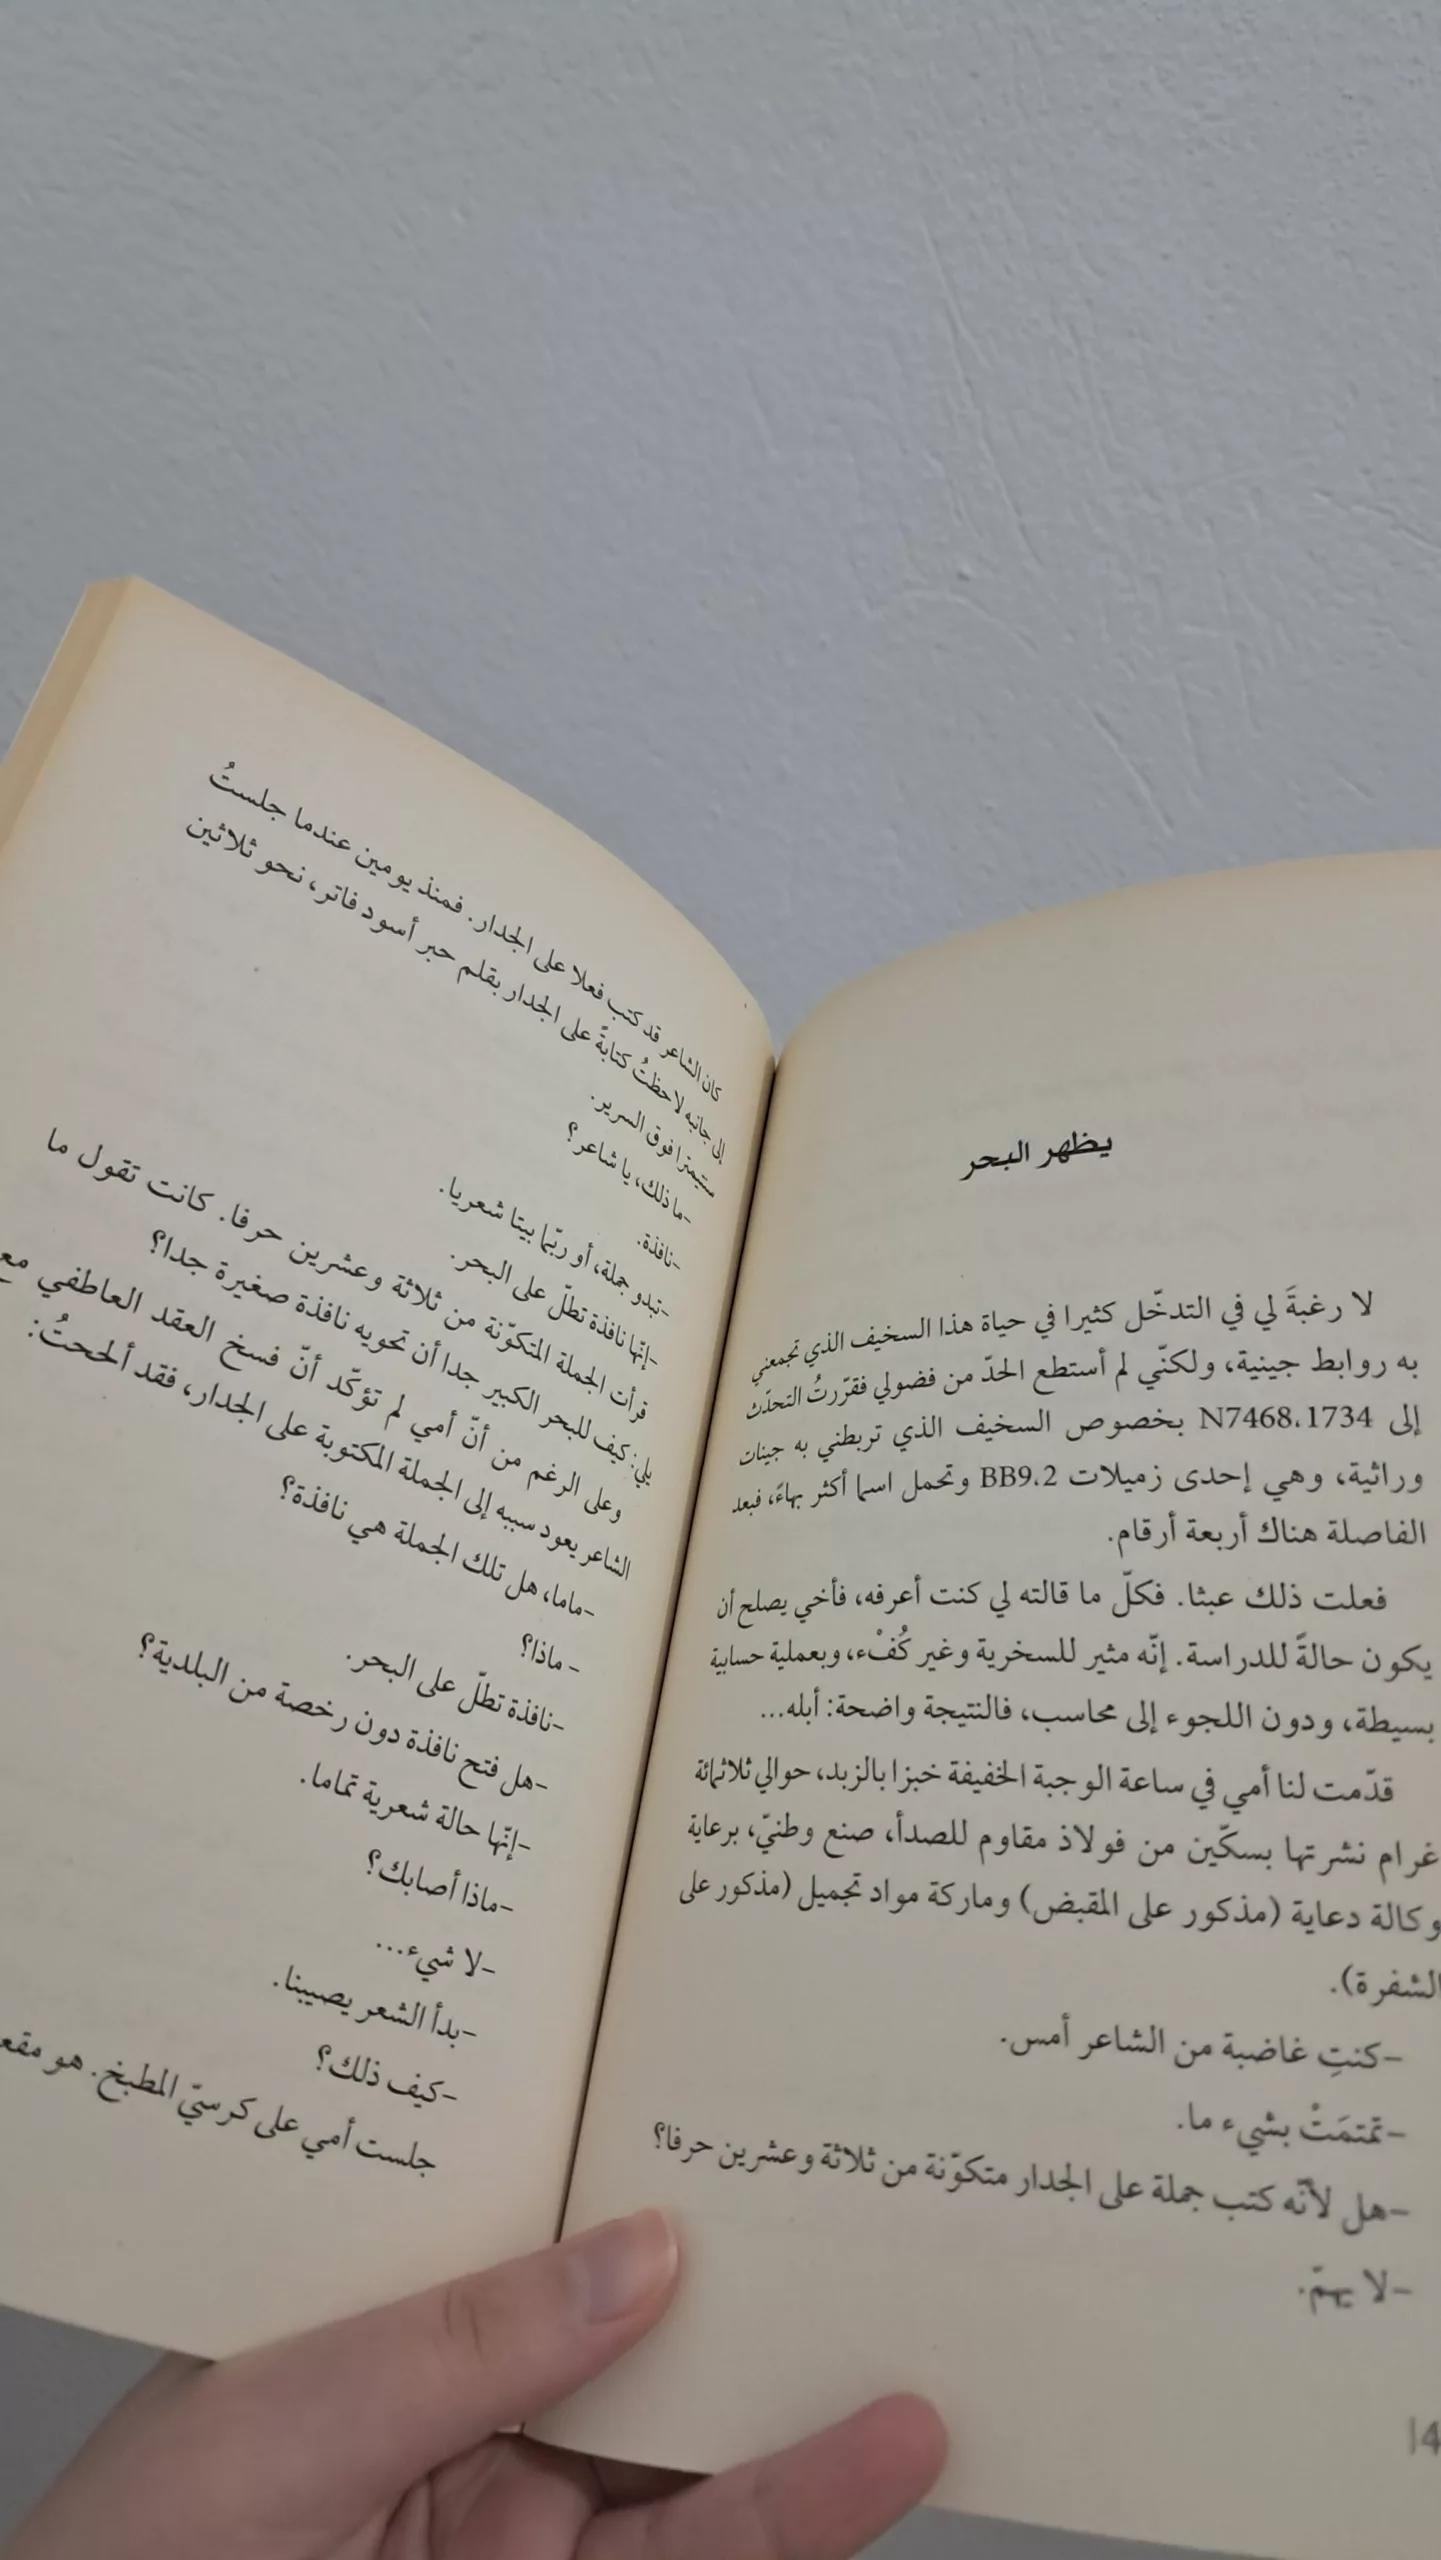 يظهر البحر
لا رغبةَ لي في التدخّل كثيرا في حياة هذا السخيف الذي تجمعني
به روابط جينية، ولكنّي لم أستطع الحدّ من فضولي فقرّرتُ التحدّث
إلى N7468،1734 بخصوص السخيف الذي تربطني به جينات
وراثية، وهي إحدى زميلات BB9،2 وتحمل اسما أكثر بهاءً، فبعد
الفاصلة هناك أربعة أرقام.
فعلت ذلك عبثا. فكلّ ما قالته لي كنت أعرفه، فأخي يصلح أن
يكون حالةً للدراسة. إنّه مثير للسخرية وغير كُفْء، وبعملية حسابية
بسيطة، ودون اللجوء إلى محاسب، فالنتيجة واضحة: أبله...
قدّمت لنا أمي في ساعة الوجبة الخفيفة خبزا بالزبد، حوالي ثلاثمائة
غرام نشرتها بسكّين من فولاذ مقاوم للصدأ، صنع وطنيّ، برعاية
وكالة دعاية (مذكور على المقبض) وماركة مواد تجميل (مذكور على
الشفرة).
-كنتِ غاضبة من الشاعر أمس.
-تمتمَتْ بشيء ما.
-هل لأنّه كتب جملة على الجدار متكوّنة من ثلاثة وعشرين حرفا؟
-لا يهمّ.
كان الشاعر قد كتب فعلا على الجدار. فمنذ يومين عندما جلستُ
إلى جانبه لاحظتُ كتابةً على الجدار بقلم حبر أسود فاتر، نحو ثلاثين
سنتيمترا فوق السرير.
-ما ذلك، يا شاعر؟
-نافذة.
-تبدو جملة، أو ربّما بيتا شعريا.
-إنّها نافذة تطلّ على البحر.
قرأت الجملة المتكوّنة من ثلاثة وعشرين حرفا. كانت تقول ما
يلي: كيف للبحر الكبير جدا أن تحويه نافذة صغيرة جدا؟
وعلى الرغم من أنّ أمي لم تؤكّد أنّ فسخ العقد العاطفي مع
الشاعر يعود سببه إلى الجملة المكتوبة على الجدار، فقد ألححتُ:
-ماما، هل تلك الجملة هي نافذة؟
- ماذا؟
-نافذة تطلّ على البحر.
-هل فتح نافذة دون رخصة من البلدية؟
-إنّها حالة شعرية تماما.
-ماذا أصابك؟
-لا شيء...
-بدأ الشعر يصيبنا.
-كيف ذلك؟
جلست أمي على كرسيّ المطبخ. هو